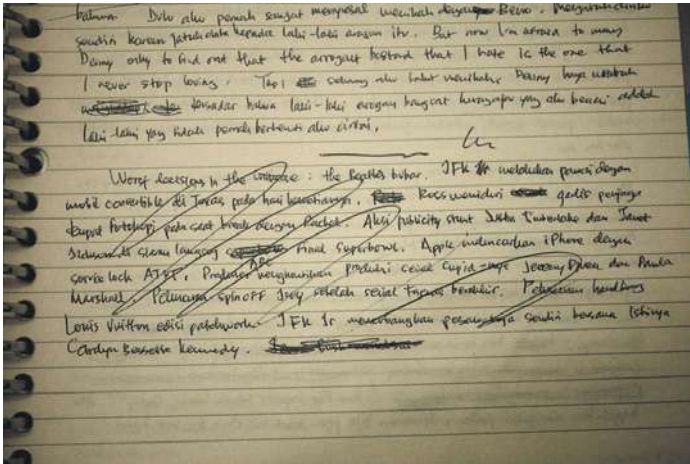 bahwa. Dulu aku pernah sangat menyesal menikah dengan Beno. Mengutuk diriku
sendiri karena jatuh cinta kepada laki-laki arogan itu. But now I'm afraid to marry
Denny only to find out that the arrogant bastard that I hate is the one that
I never stop loving. Tapi sekarang aku takut menikahi Denny hanya untuk
tersadar bahwa laki-laki arogan bangsat yang aku benci adalah
laki-laki yang tidak pernah berhenti aku cintai.
Worst decisions in the universe: the Beatles bubar. JFK melakukan pawai dengan
mobil convertible di Texas pada hari kematiannya. Ross meniduri gadis penjaga
tempat fotokopi pada saat break dengan Rachel. Aksi publicity stunt Justin Timberlake dan Janet
Jackson di siaran langsung final Superbowl. Apple meluncurkan iPhone dengan
service lock AT&T. Produser ABC menghentikan produksi serial Cupid-nya Jeremy Piven dan Paula
Marshall. Peluncuran spinoff Joey setelah serial Friends berakhir. Peluncuran handbag
Louis Vuitton edisi patchwork. JFK Jr menerbangkan pesawatnya sendiri bersama istrinya
Carolyn Bessette Kennedy.